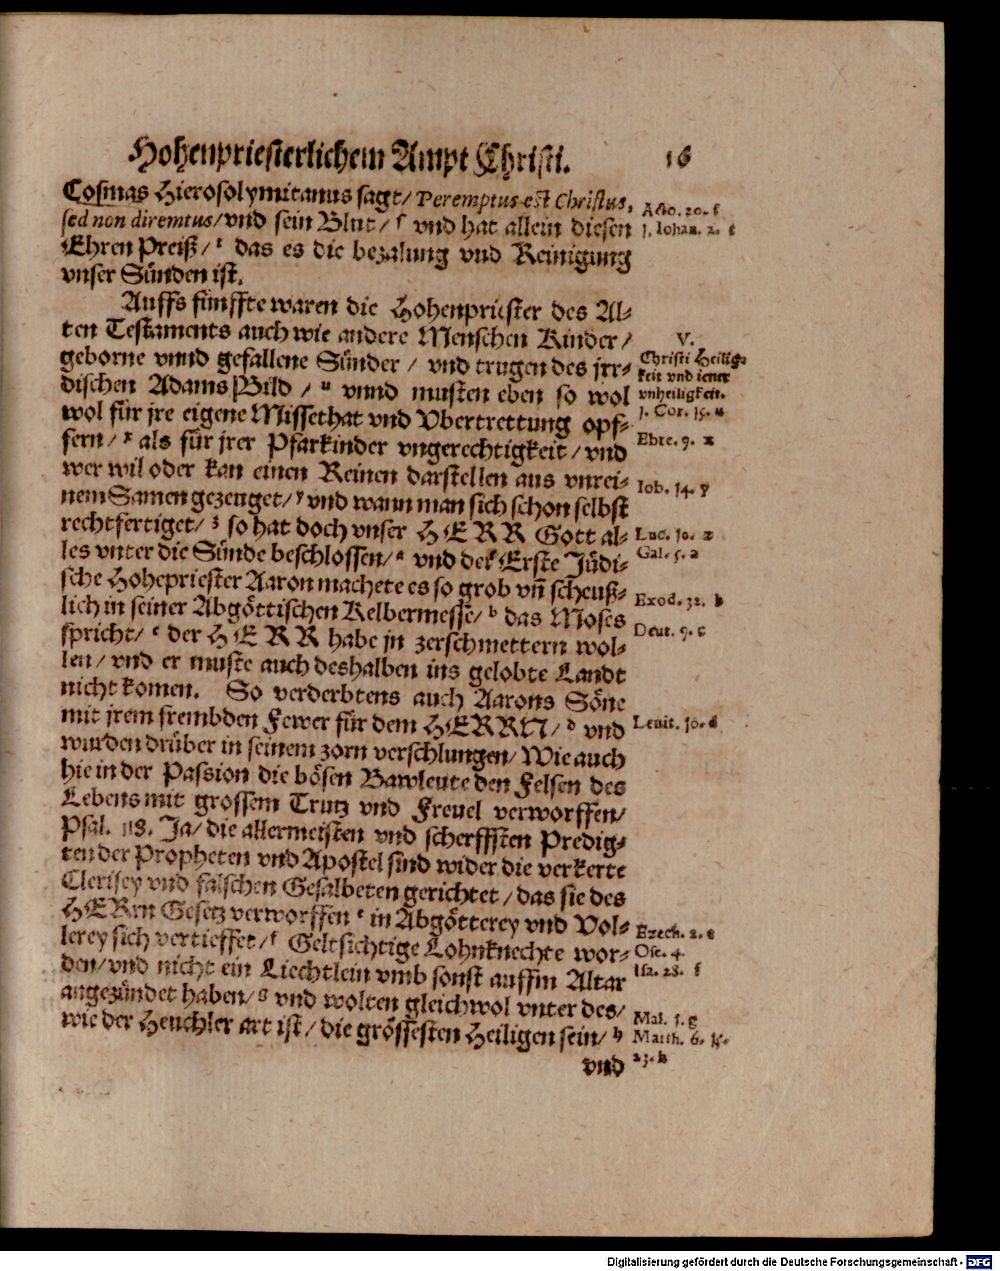 Hohenpriesterlichem Ampt Christi. 16
Cosmas Hierosolymitanus sagt/ Peremptus est Christus,
sed non diremtus/ vnd sein Blut/ ſ vnd hat allein diesen
Ehren Preiß/ t das es die bezalung vnd Reinigung
vnser Sünden ist.
Auffs fünffte waren die Hohenpriester des Al-
ten Testaments auch wie andere Menschen Kinder/
geborne vnnd gefallene Sünder / vnd trugen des jrr-
dischen Adams Bild / u vnnd musten eben so wol
wol für jre eigene Missethat vnd Vbertrettung opf-
fern/ x als für jrer Pfarkinder vngerechtigkeit / vnd
wer wil oder kan einen Reinen darstellen aus vnrei-
nem Samen gezeuget/ y vnd wann man sich schon selbst
rechtfertiget/ z so hat doch vnser HERR Gott al-
les vnter die Sünde beschlossen/ a vnd der Erste Jüdi-
sche Hohepriester Aaron machete es so grob vñ scheuß-
lich in seiner Abgöttischen Kelbermesse/ b das Moses
spricht/ c der HERR habe jn zerschmettern wol-
len/ vnd er muste auch deshalben ins gelobte Landt
nicht komen. So verderbtens auch Aarons Söne
mit jrem frembden Fewer für dem HERRN/ d vnd
wurden drüber in seinem zorn verschlungen/ Wie auch
hie in der Passion die bösen Bawleute den Felsen des
Lebens mit grossem Trutz vnd Freuel verworffen/
Psal. 118. Ja/ die allermeisten vnd scherffsten Predig-
ten der Propheten vnd Apostel sind wider die verkerte
Clerisey vnd falschen Gesalbeten gerichtet / das sie des
HERrn Gesetz verworffen e in Abgötterey vnd Vol-
lerey sich vertieffet/ f Geltsichtige Lohnknechte wor-
den/ vnd nicht ein Liechtlein vmb sonst auffm Altar
angezündet haben/ g vnd wolten gleichwol vnter des/
wie der Heuchler art ist/ die grössesten Heiligen sein/ h
vnd
Acto. 20. ſ
1. Iohan. 2. t
V.
Christi Heilig-
keit vnd jener
vnheiligkeit.
1. Cor. 15. u
Ebre. 9. x
Iob. 14. y
Luc. 10. z
Gal. 3. a
Exod. 32. b
Deut. 9. c
Leuit. 10. d
Ezech. 2. e
Ose. 4.
Isa. 28. f
Mal. 1. g
Matth. 6. 15.
23. h
Digitalisierung gefördert durch die Deutsche Forschungsgemeinschaft - DFG